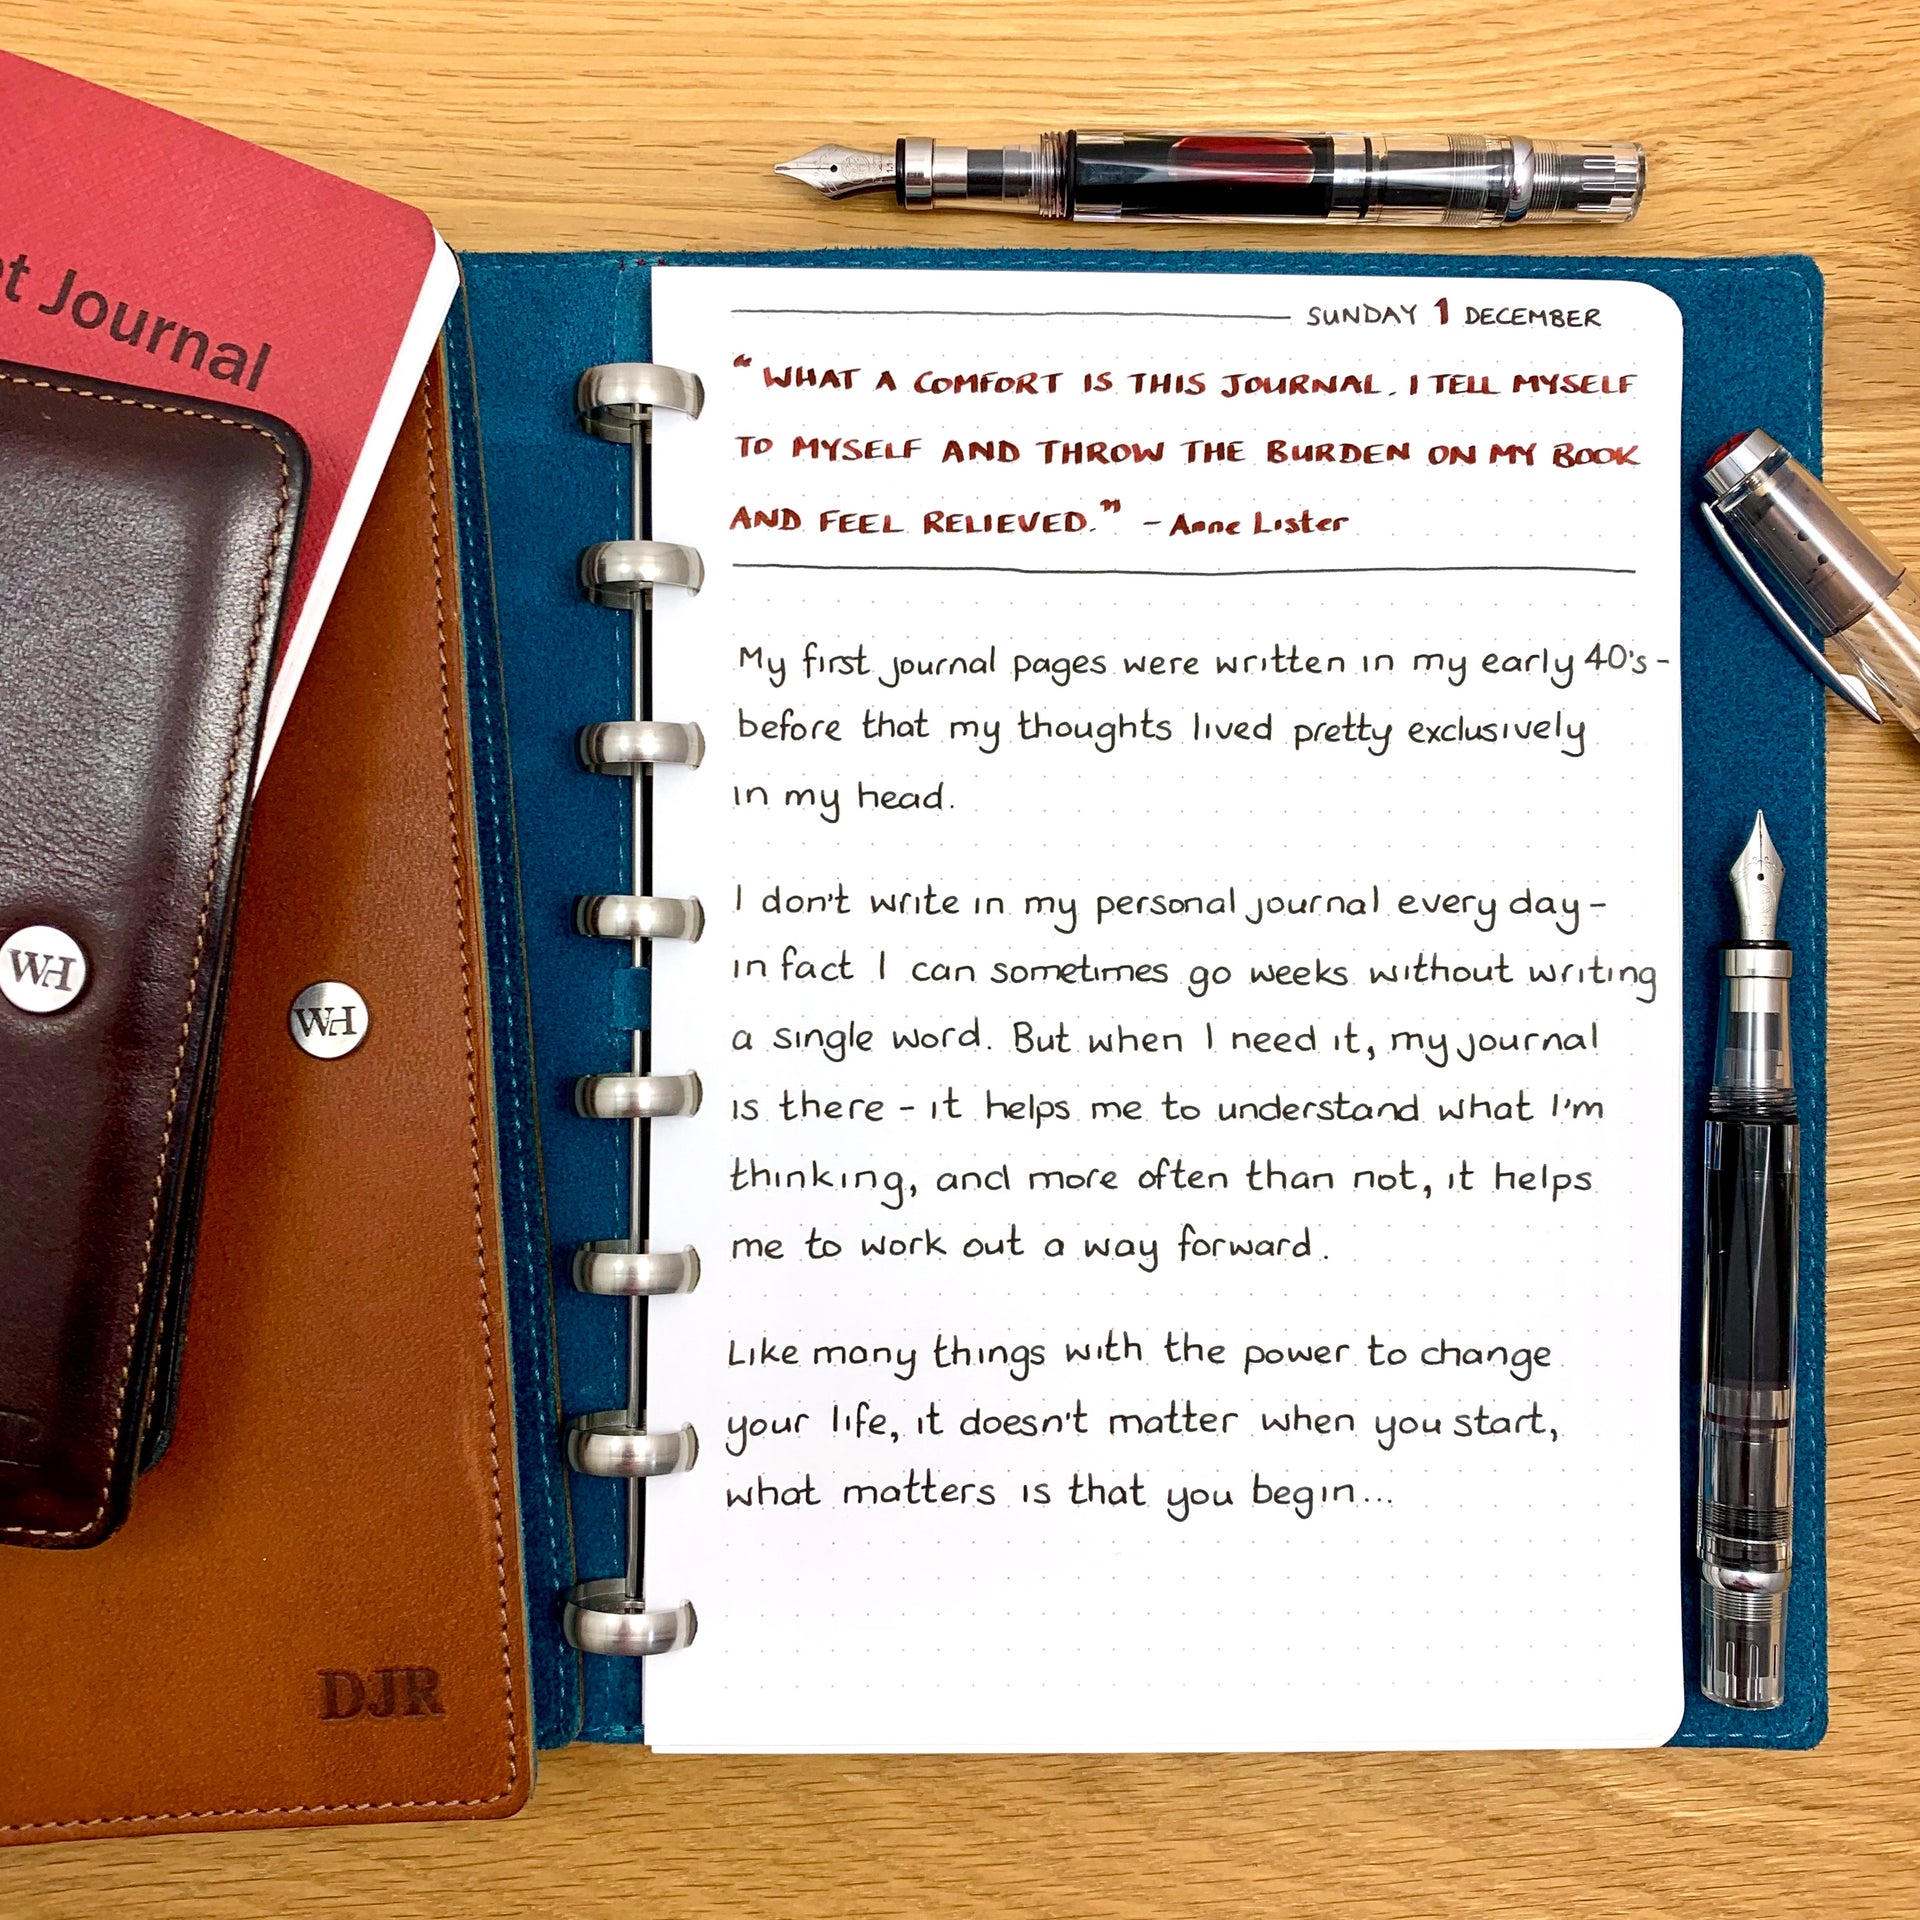 t Journal
WH
WH
DJR
SUNDAY 1 DECEMBER
"WHAT A COMFORT IS THIS JOURNAL. I TELL MYSELF
TO MYSELF AND THROW THE BURDEN ON MY BOOK
AND FEEL RELIEVED." - Anne Lister
My first journal pages were written in my early 40's -
before that my thoughts lived pretty exclusively
in my head.
I don't write in my personal journal every day -
in fact I can sometimes go weeks without writing
a single word. But when I need it, my journal
is there - it helps me to understand what I'm
thinking, and more often than not, it helps
me to work out a way forward.
Like many things with the power to change
your life, it doesn't matter when you start,
what matters is that you begin...